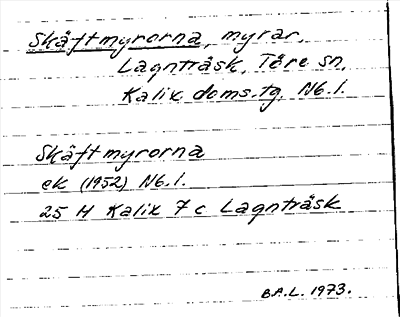 Skäftmyrorna, myrar,
Lagnträsk, Töre sn,
Kalix doms.tg, Nb.l.
Skäftmyrorna
ek (1952) Nb.l.
25 M Kalix 7 c Lagnträsk
B.A.L. 1973.